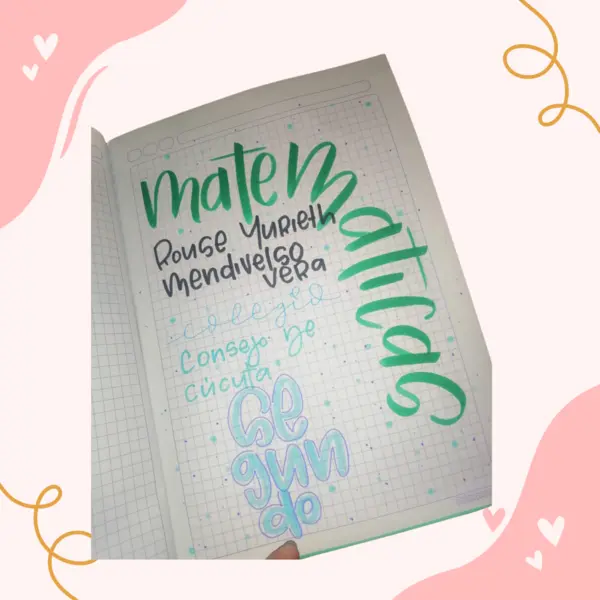 matematicas
Rouse Yurieth
mendivelso
vera
colegio
Consejo de
cúcuta
se
gun
do